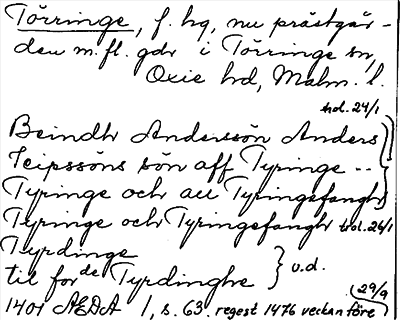 Törringe, f. hg, nu prästgår-
den m.fl. gdr i Törringe sn,
Oxie hd, Malm. l.
trd. 24/1
Beindh Anderssön Anders
Jeipssöns sön aff Tyringe --
Tyringe och all Tyringsfangh
Tyringe och Tyringefangh trd. 26/1
Tyrdinge
til for de Tyrdinghe } v.d.
1401 ÆDA 1, s. 63. regest 1476 veckan före 29/9